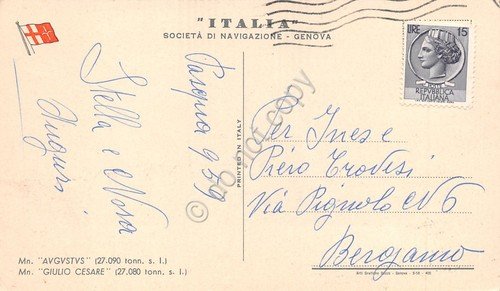 "ITALIA"
SOCIETÀ DI NAVIGAZIONE - GENOVA
LIRE 15
POSTE
REPVBBLICA
ITALIANA
Pasqua 959
Stella e Nora
Auguri
PRINTED IN ITALY
do not copy
Per Ines e
Piero Trovesi
Via Pignolo N 6
Bergamo
Mn. "AVGVSTVS" (27.090 tonn. s. l.)
Mn. "GIULIO CESARE" (27.080 tonn. s. l.)